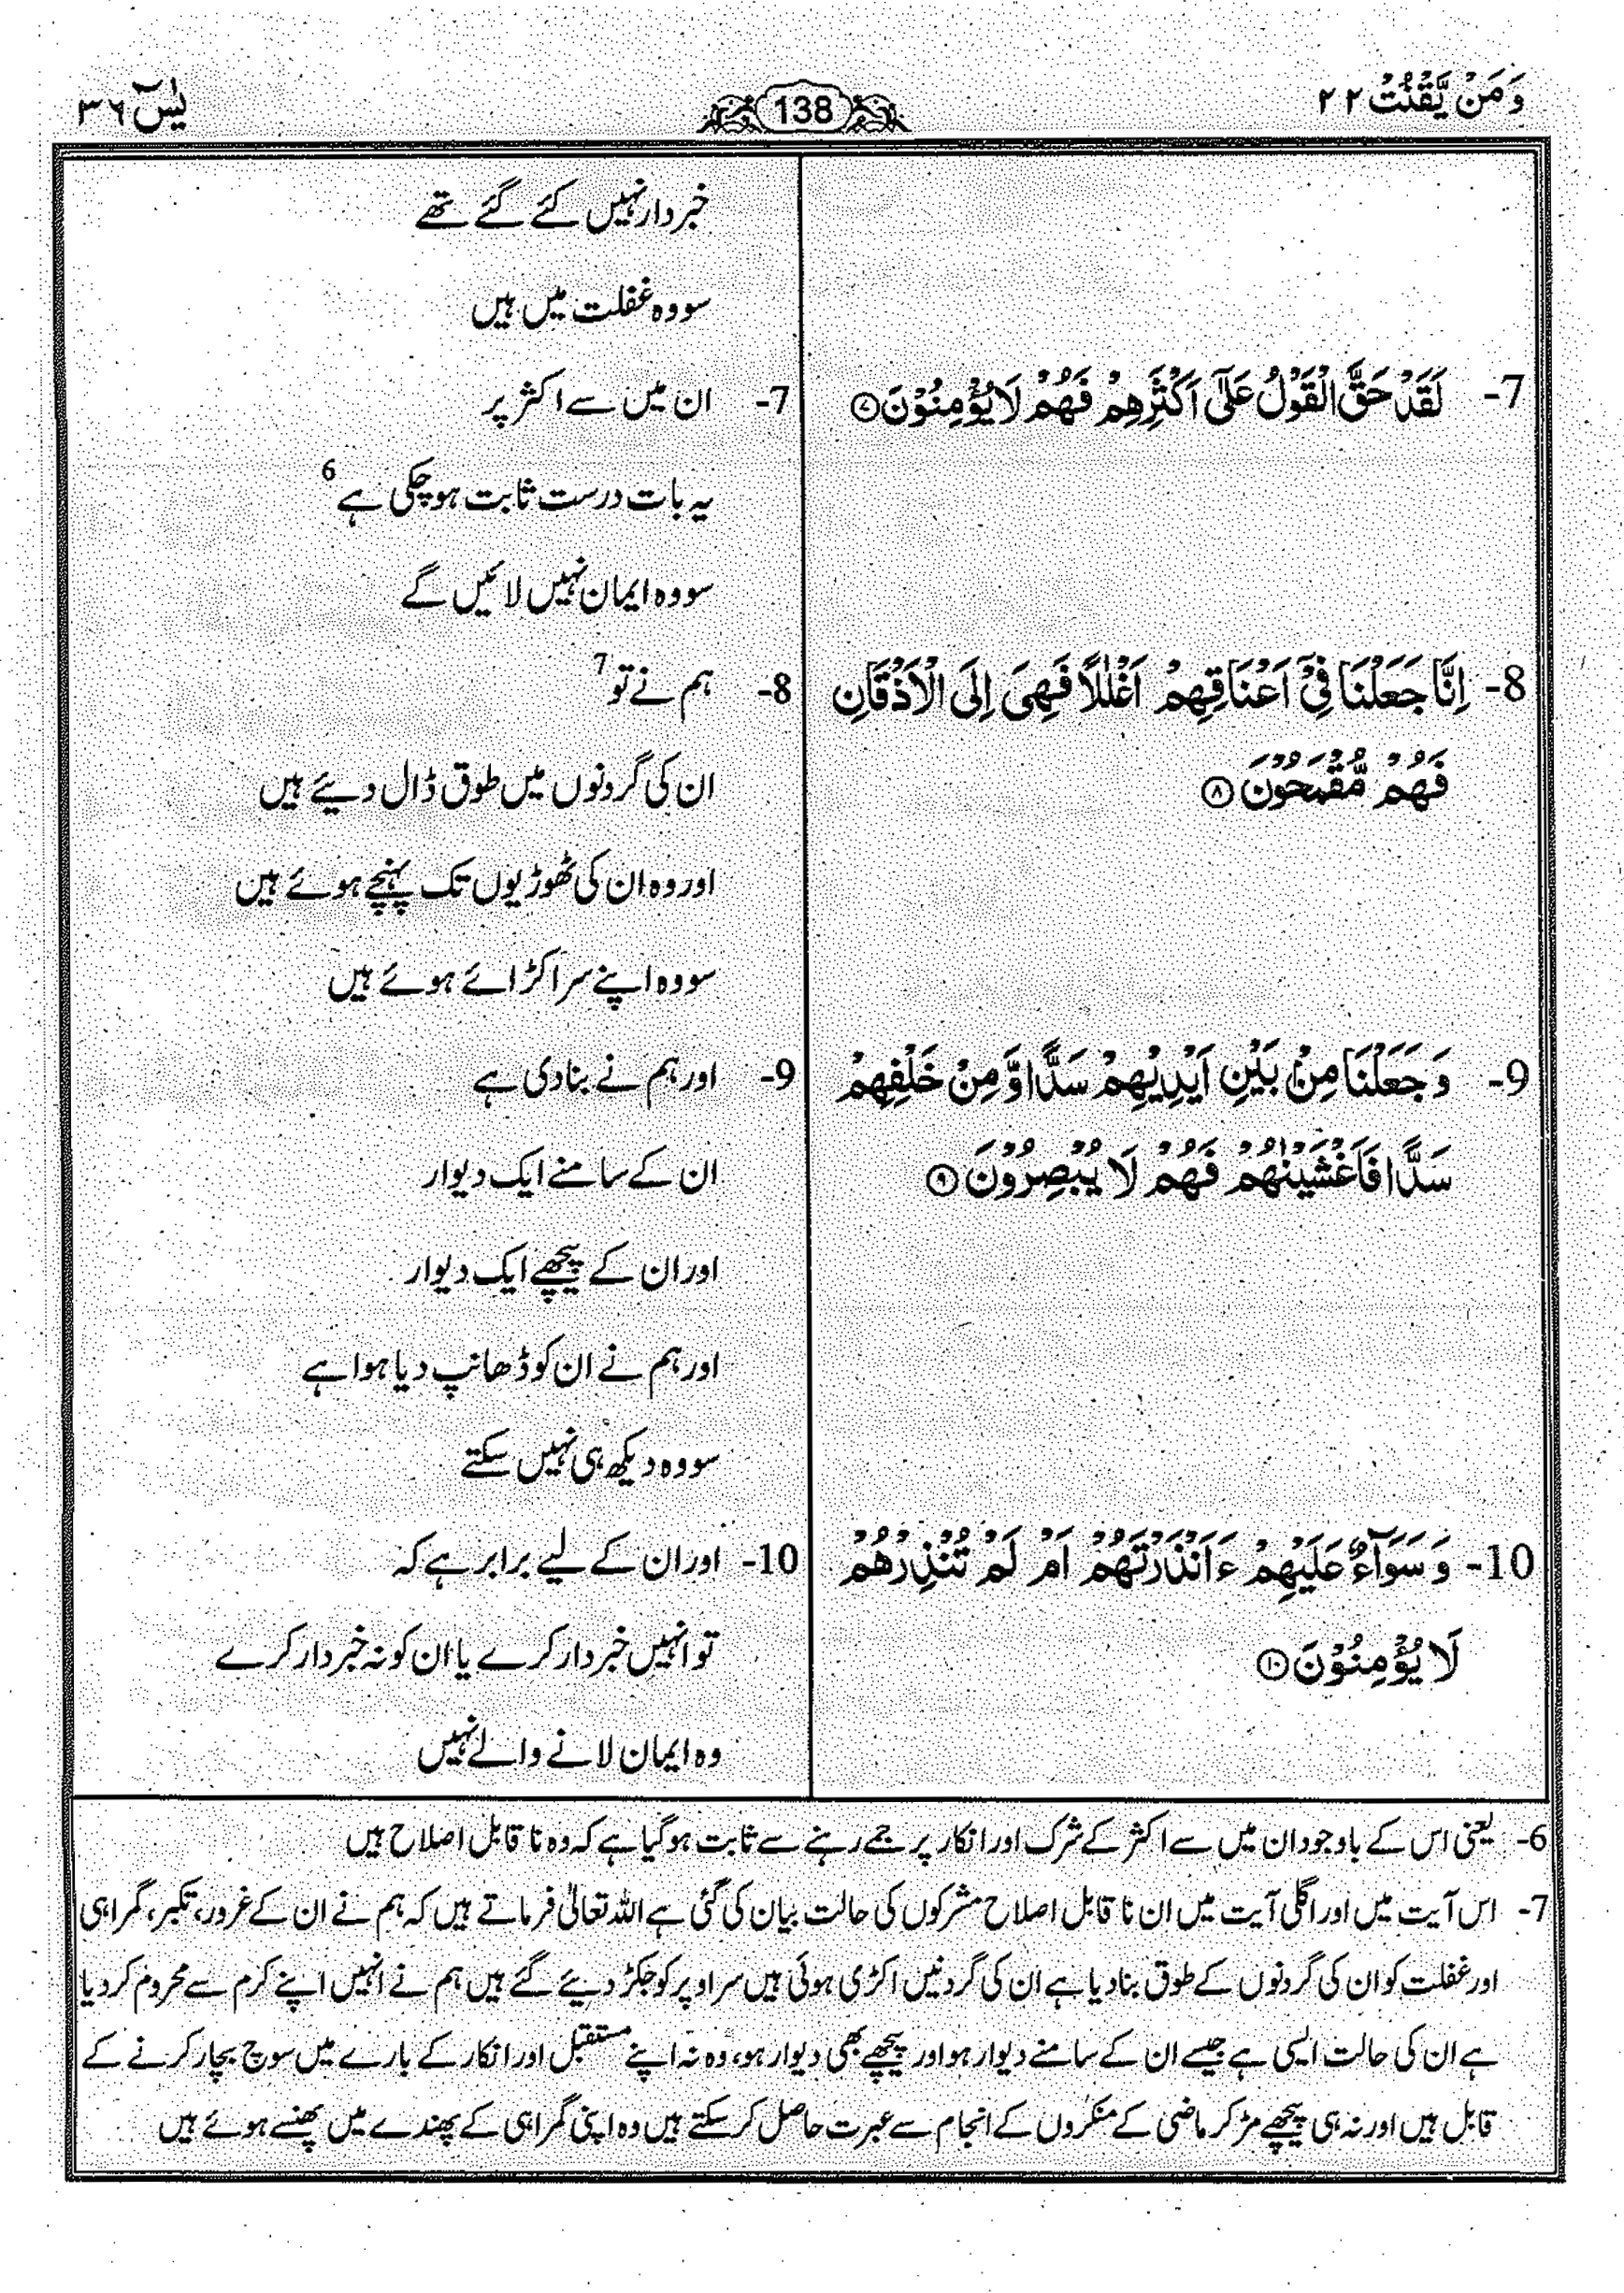 وَمَنْ يَّقْنُتْ ٢٢
138
يٰسٓ ٣٦
خبردار نہیں کئے گئے تھے
سو وہ غفلت میں ہیں
7- لَقَدْ حَقَّ الْقَوْلُ عَلٰٓى اَكْثَرِهِمْ فَهُمْ لَا يُؤْمِنُوْنَ ﴿٧﴾
7- ان میں سے اکثر پر
یہ بات درست ثابت ہو چکی ہے 6
سو وہ ایمان نہیں لائیں گے
8- اِنَّا جَعَلْنَا فِيْٓ اَعْنَاقِهِمْ اَغْلٰلًا فَهِيَ اِلَى الْاَذْقَانِ
فَهُمْ مُّقْمَحُوْنَ ﴿٨﴾
8- ہم نے تو 7
ان کی گردنوں میں طوق ڈال دیئے ہیں
اور وہ ان کی ٹھوڑیوں تک پہنچے ہوئے ہیں
سو وہ اپنے سر اکڑائے ہوئے ہیں
9- وَجَعَلْنَا مِنْۢ بَيْنِ اَيْدِيْهِمْ سَدًّا وَّمِنْ خَلْفِهِمْ
سَدًّا فَاَغْشَيْنٰهُمْ فَهُمْ لَا يُبْصِرُوْنَ ﴿٩﴾
9- اور ہم نے بنا دی ہے
ان کے سامنے ایک دیوار
اور ان کے پیچھے ایک دیوار
اور ہم نے ان کو ڈھانپ دیا ہوا ہے
سو وہ دیکھ ہی نہیں سکتے
10- وَسَوَآءٌ عَلَيْهِمْ ءَاَنْذَرْتَهُمْ اَمْ لَمْ تُنْذِرْهُمْ
لَا يُؤْمِنُوْنَ ﴿١٠﴾
10- اور ان کے لیے برابر ہے کہ
تو انہیں خبردار کرے یا ان کو نہ خبردار کرے
وہ ایمان لانے والے نہیں
6- یعنی اس کے باوجود ان میں سے اکثر کے شرک اور انکار پر جمے رہنے سے ثابت ہو گیا ہے کہ وہ نا قابل اصلاح ہیں
7- اس آیت میں اور اگلی آیت میں ان نا قابل اصلاح مشرکوں کی حالت بیان کی گئی ہے اللہ تعالیٰ فرماتے ہیں کہ ہم نے ان کے غرور، تکبر، گمراہی
اور غفلت کو ان کی گردنوں کے طوق بنا دیا ہے ان کی گردنیں اکڑی ہوئی ہیں سر اوپر کو جکڑ دیئے گئے ہیں ہم نے انہیں اپنے کرم سے محروم کر دیا
ہے ان کی حالت ایسی ہے جیسے ان کے سامنے دیوار ہو اور پیچھے بھی دیوار ہو، وہ نہ اپنے مستقبل اور انکار کے بارے میں سوچ بچار کرنے کے
قابل ہیں اور نہ ہی پیچھے مڑ کر ماضی کے منکروں کے انجام سے عبرت حاصل کر سکتے ہیں وہ اپنی گمراہی کے پھندے میں پھنسے ہوئے ہیں